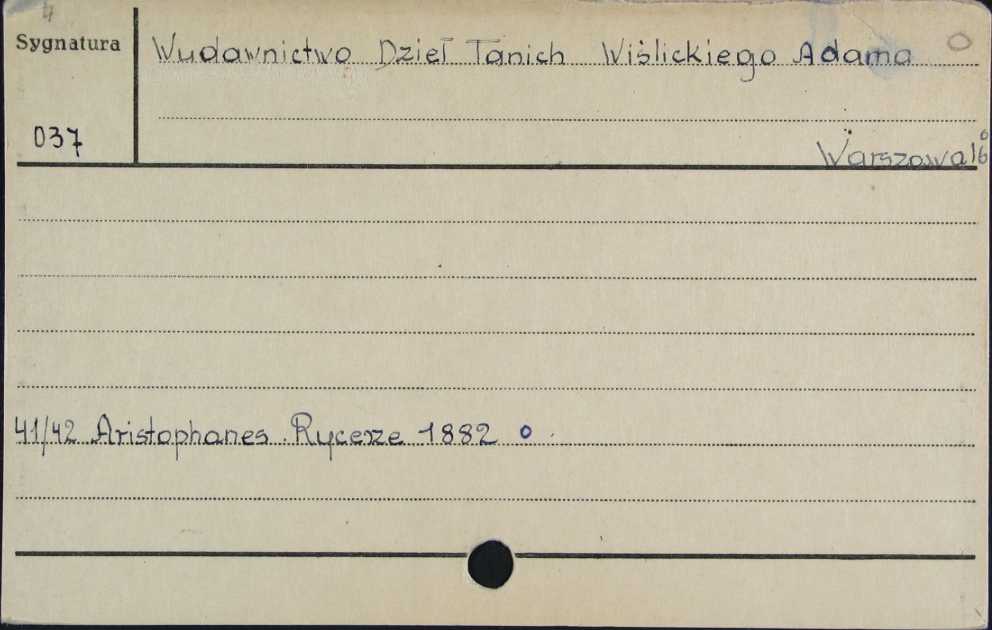 4
Sygnatura
Wydawnictwo Dzieł Tanich Wiślickiego Adama O
037
Warszawa 16
41/42 Aristophanes. Rycerze 1882 o